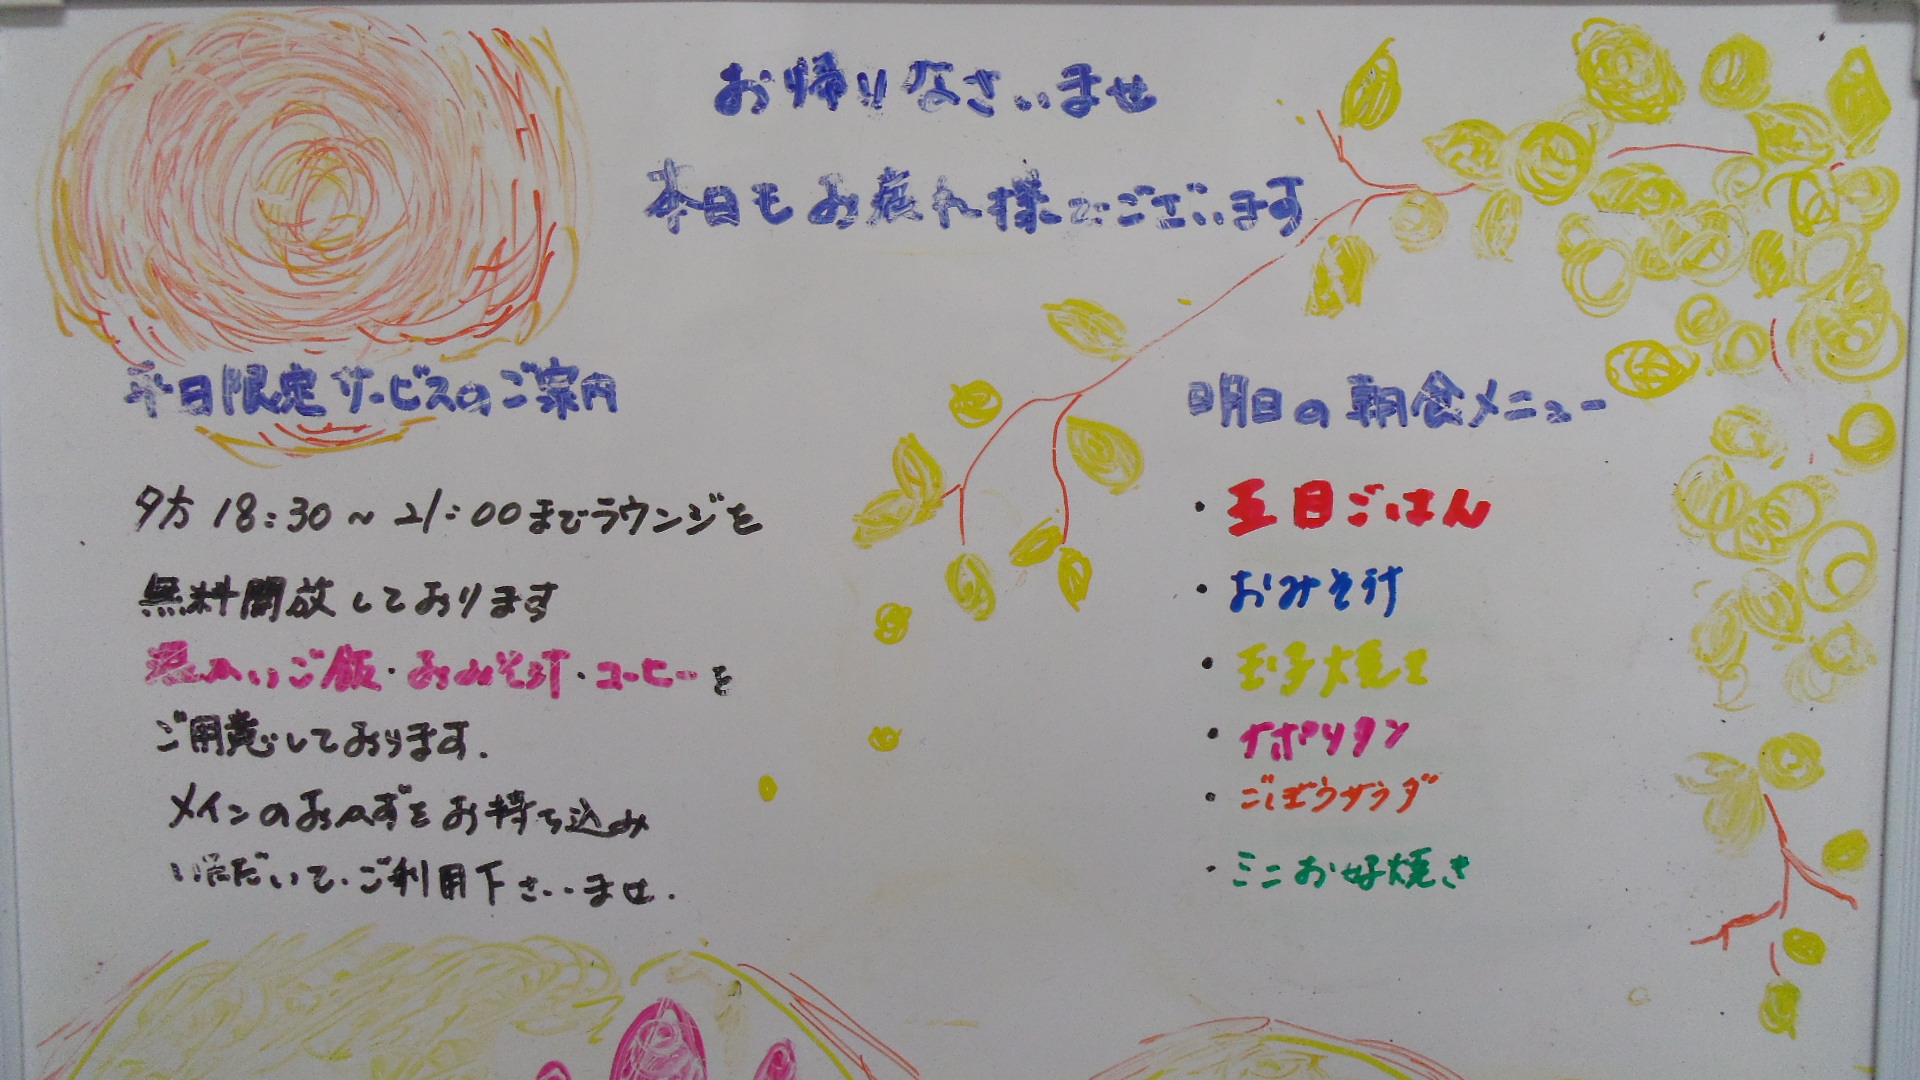 お帰りなさいませ
本日もお疲れ様でございます
平日限定サービスのご案内
夕方 18:30~21:00までラウンジを
無料開放しております
温かいご飯・おみそ汁・コーヒーを
ご用意しております.
メインのおかずをお持ち込み
いただいて、ご利用下さいませ.
明日の朝食メニュー
・五目ごはん
・おみそ汁
・玉子焼き
・ナポリタン
・ごぼうサラダ
・ミニお好焼き